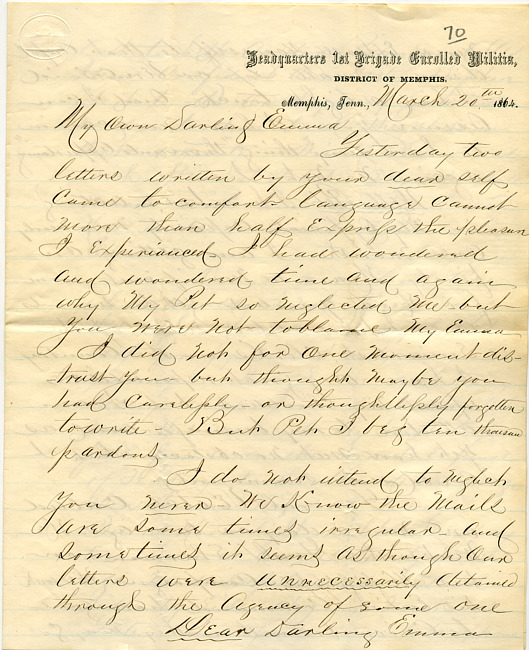 70
Headquarters 1st Brigade Enrolled Militia,
DISTRICT OF MEMPHIS.
Memphis, Tenn., March 20th 1864.
My Own Darling Emma
Yesterday two
letters written by your dear self
came to comfort- language cannot
more than half Express the pleasure
I Experienced I had wondered
and wondered time and again
why My Pet so neglected Me- but
You were not to blame My Emma
I did not for one moment dis-
-trust You- but thought maybe you
had carelessly- or thoughtlessly forgotten
to write- But Pet I beg ten thousand
pardons.
I do not intend to neglect
You never- We Know the Mails
are some times irregular- and
sometimes it seems as though our
letters were unnecessarily detained
through the Agency of some one
Dear Darling Emma